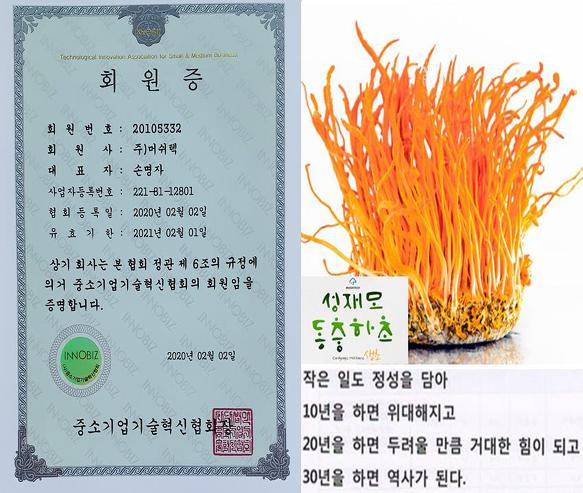 INNOBIZ
Technological Innovation Association for Small & Medium Business
회 원 증
회 원 번 호 : 20105332
회 원 사 : 주)머쉬텍
대 표 자 : 손명자
사업자등록번호 : 221-81-12801
협 회 등 록 일 : 2020년 02월 02일
유 효 기 한 : 2021년 02월 01일
상기 회사는 본 협회 정관 제 6조의 규정에
의거 중소기업기술혁신협회의 회원임을
증명합니다.
INNOBIZ
2020년 02월 02일
중소기업기술혁신협회장
성재모
동충하초
생초
작은 일도 정성을 담아
10년을 하면 위대해지고
20년을 하면 두려울 만큼 거대한 힘이 되고
30년을 하면 역사가 된다.